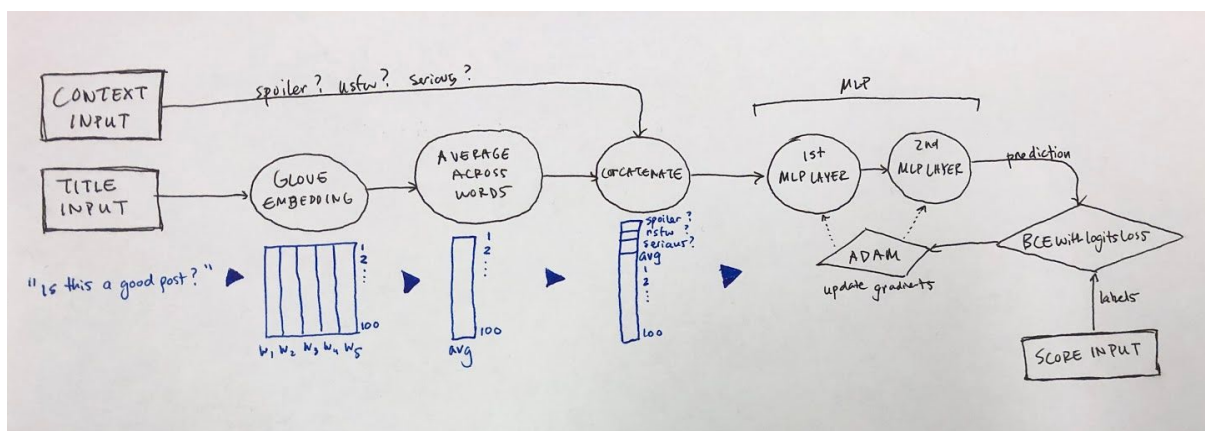 CONTEXT
INPUT
spoiler? nsfw? serious?
TITLE
INPUT
GLOVE
EMBEDDING
AVERAGE
ACROSS
WORDS
CONCATENATE
MLP
1st
MLP LAYER
2nd
MLP LAYER
prediction
BCEWithlogitsLoss
ADAM
update gradients
labels
SCORE INPUT
"Is this a good post?"
1
2
⋮
100
w1 w2 w3 w4 w5
1
2
⋮
100
avg
spoiler?
nsfw?
serious?
avg
1
2
⋮
100